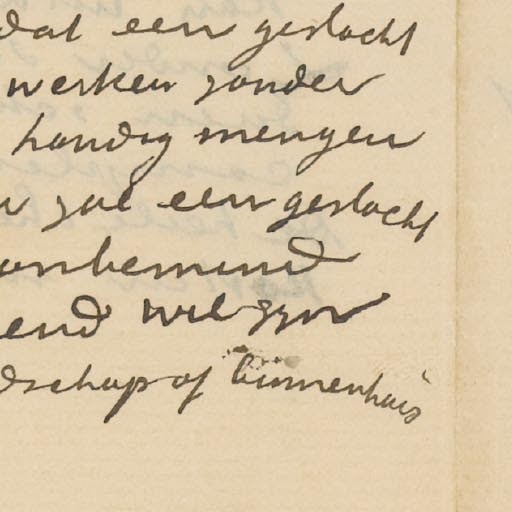 dat een geslacht
werken zonder
handig mengen
zal een geslacht
onbemind
end wil zyn
dschap of binnenhuis